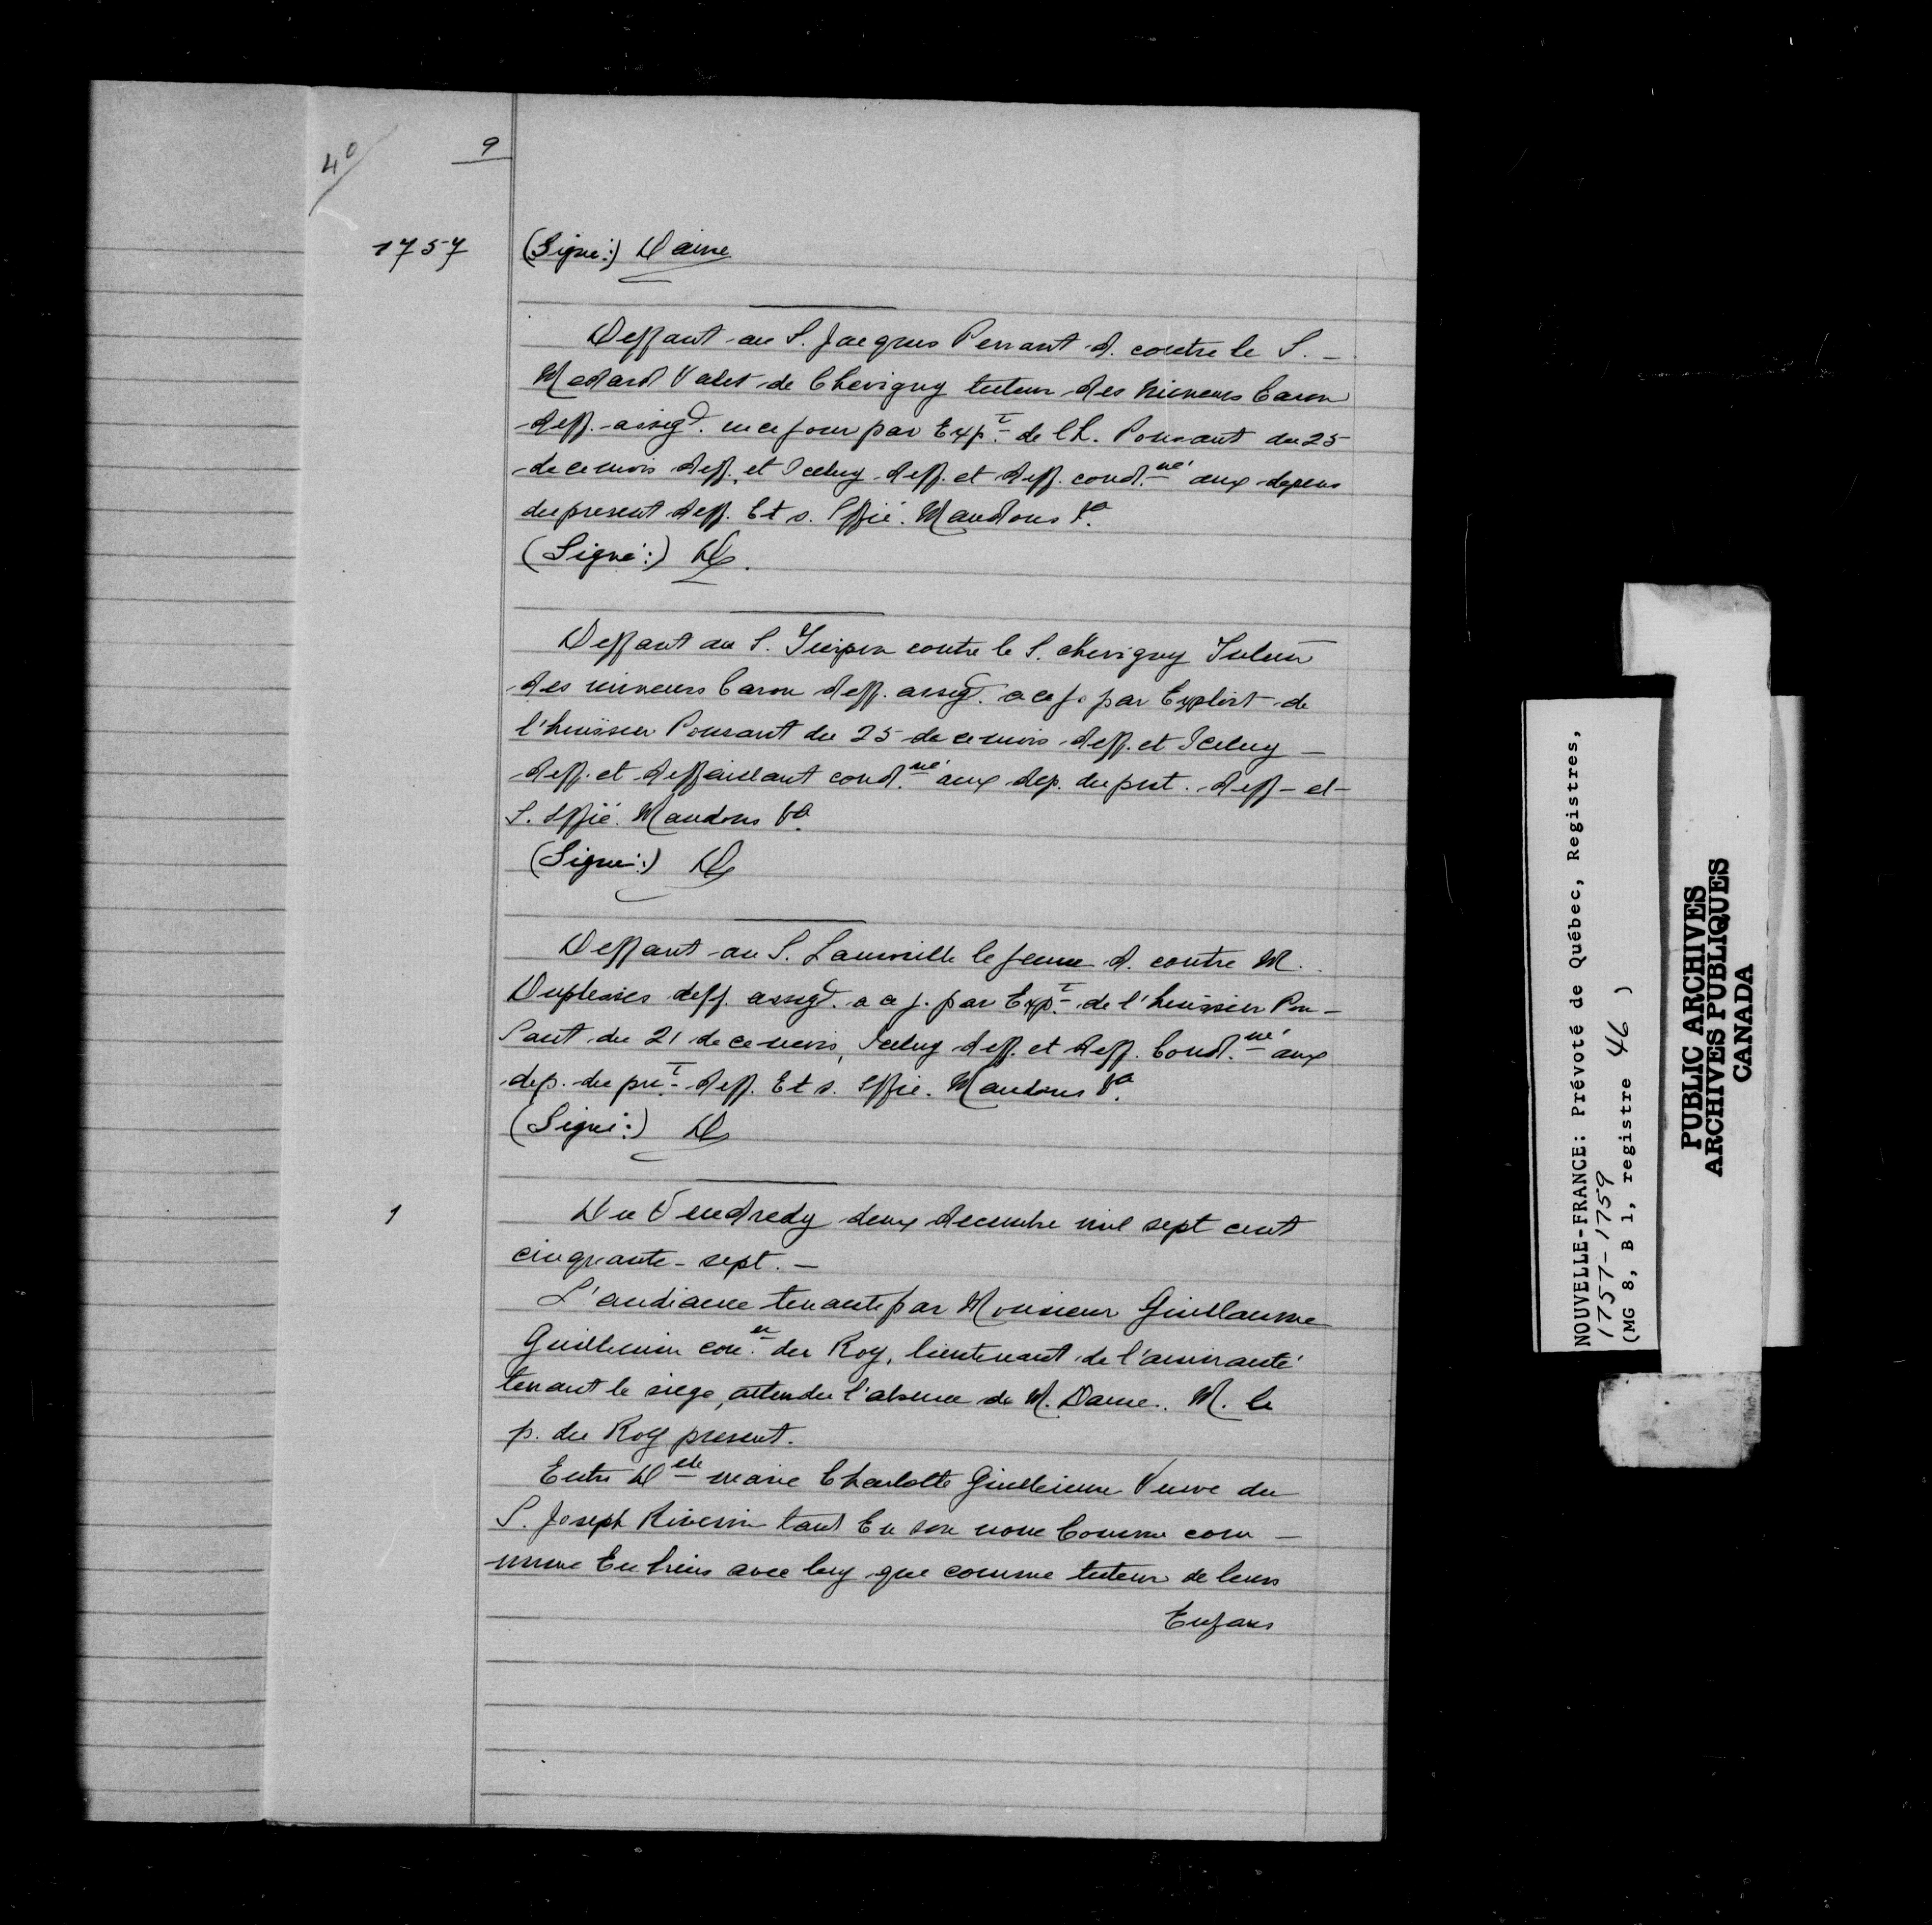 40
9
1757
(Signé:) Daine
Deffaut au S. Jacques Perrant d. contre le S. -
Medard Valet de Chevigny tuteur des mineurs Caron
deff. assigd. en ce jour par Expt. de l'h. Poussant du 25
de ce mois deff. et Iceluy deff. et deff. cond.né aux depens
du present deff. Et s. Mandons
(Signé:) D.
Deffaut au S. contre le S. chevigny Tuteur
des mineurs Caron deff. assigd. a ce j. par Exploit de
l'huissier Poussant du 25 de ce mois deff. et Iceluy -
deff. et deffaillant cond.né aux dep. du prst. deff. et
S. Mandons
(Signé:) D
Deffaut au S. le jeune d. contre M.
Duplessis deff. assigd. a ce j. par Expt. de l'huissier Pou-
sant du 21 de ce mois, Iceluy deff. et deff. Cond.né aux
dep. du prt. deff. Et s. Mandons
(Signé:) D
1
Du Vendredy deux decembre mil sept cent
cinquante-sept. -
L'audiance tenante par Monsieur Guillaume
Guillemin con.er du Roy, lieutenant de l'amirauté
tenant le siege, attendu l'absence de M. Daine. M. le
p. du Roy present.
Entre Delle marie Charlotte Guillemin Veuve du
S. Joseph Riverin tant En son nom Comme com-
mune En biens avec luy que comme tuteur de leurs
Enfans
NOUVELLE-FRANCE: Prévoté de Québec, Registres,
1757-1759
(MG 8, B 1, registre 46 )
PUBLIC ARCHIVES
ARCHIVES PUBLIQUES
CANADA